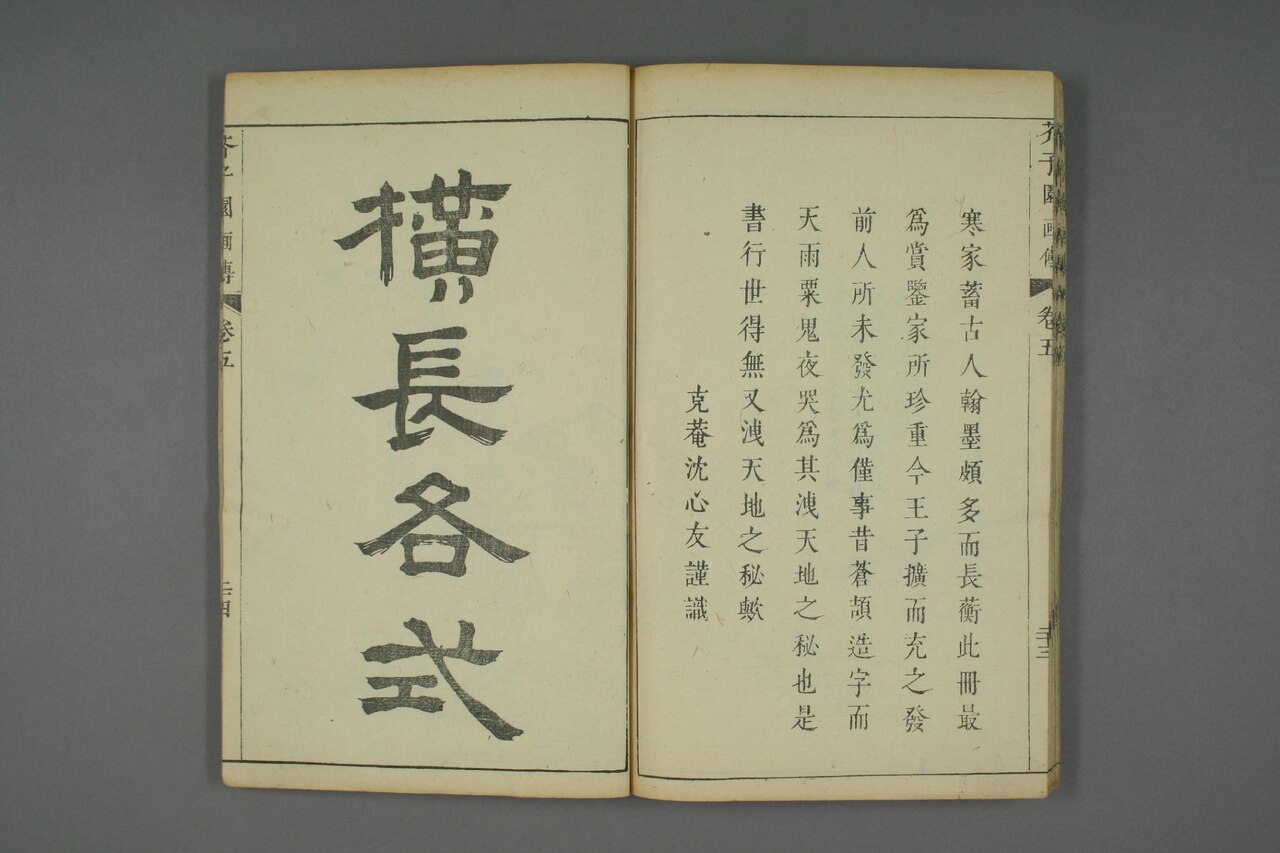 芥子園畫傳 卷五 三十三
寒家蓄古人翰墨頗多而長蘅此冊最
爲賞鑒家所珍重今王子擴而充之發
前人所未發尤爲僅事昔蒼頡造字而
天雨粟鬼夜哭爲其洩天地之秘也是
書行世得無又洩天地之秘歟
克菴沈心友謹識
橫長各式
芥子園畫傳 卷五